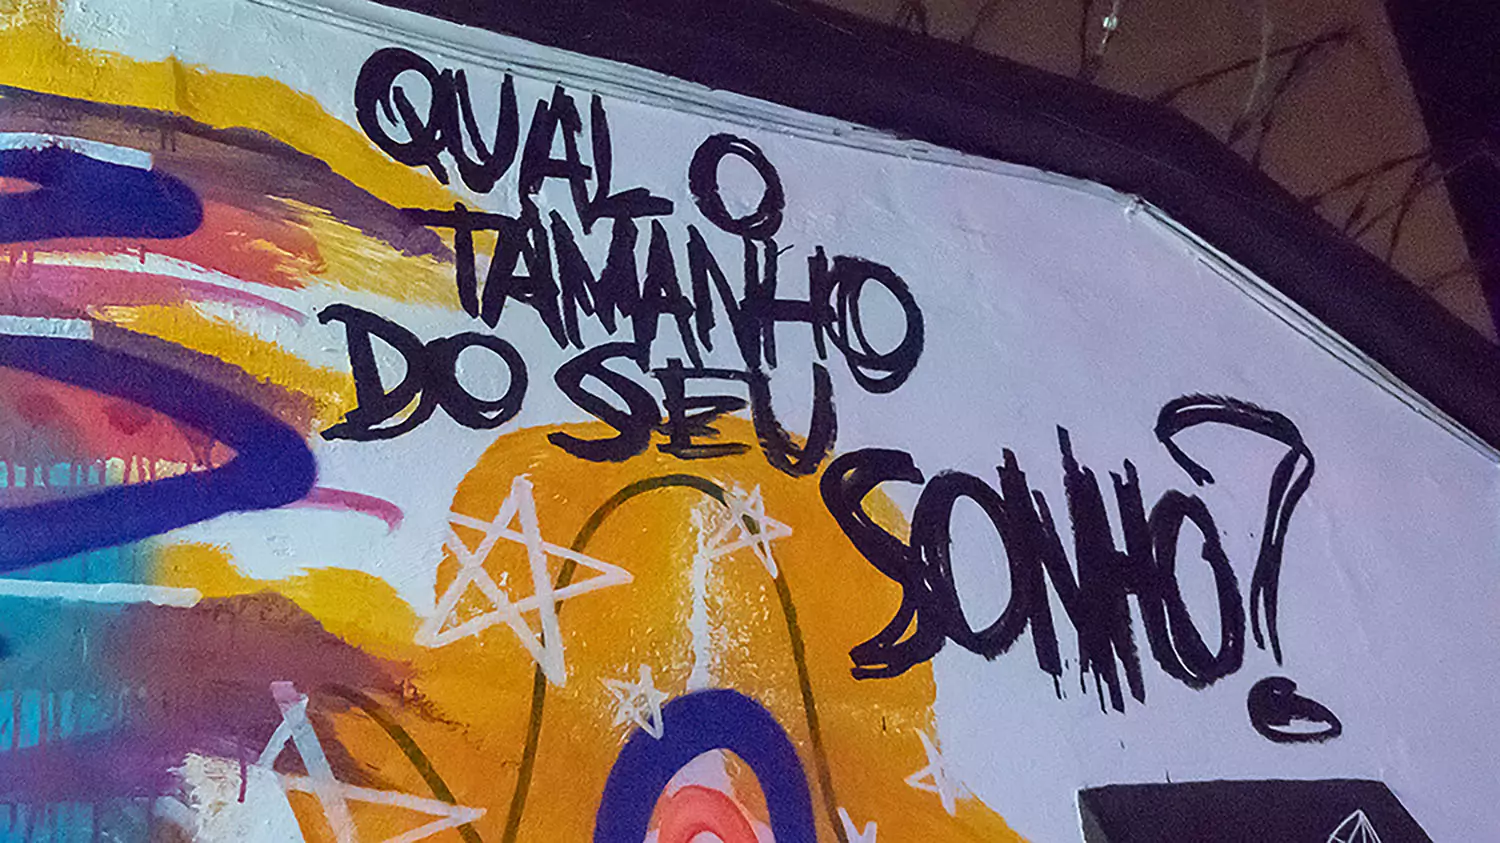 QUAL O
TAMANHO
DO SEU
SONHO?